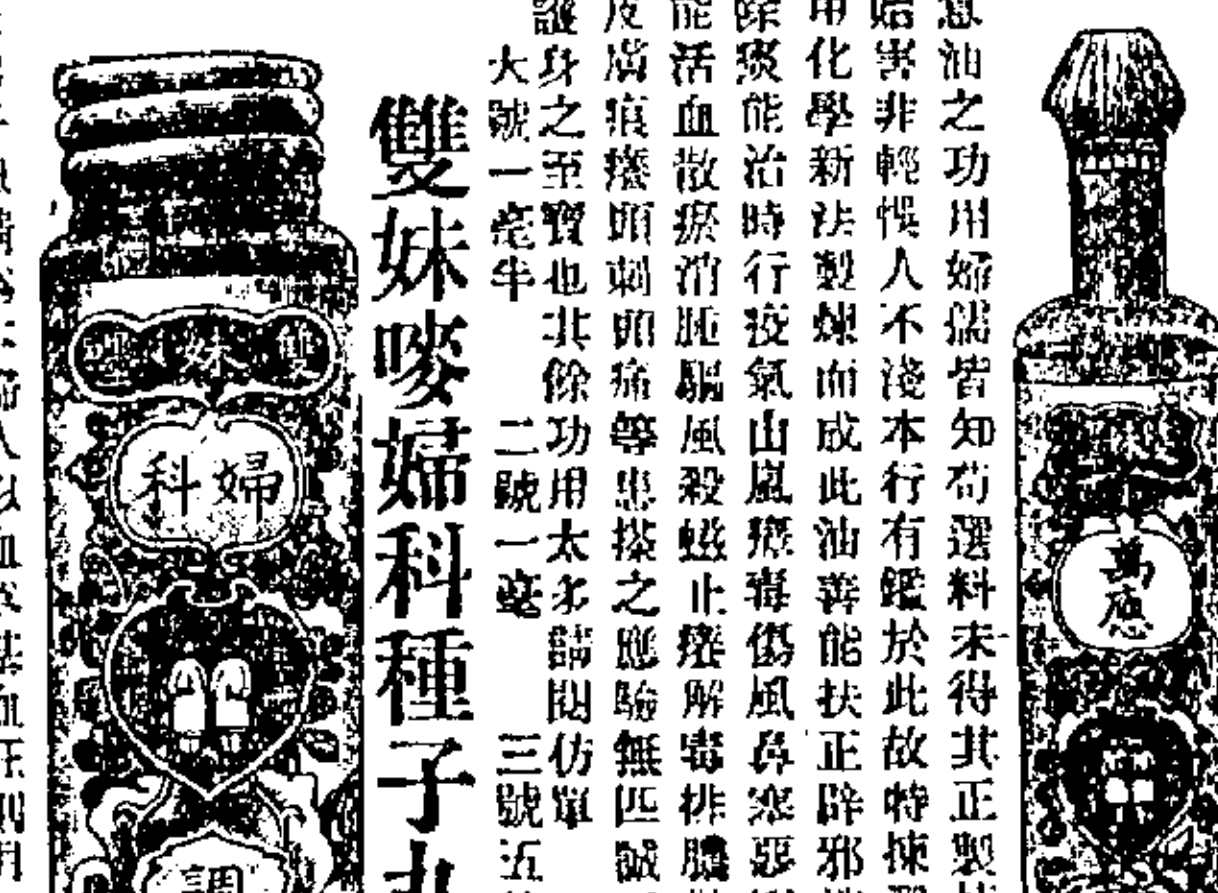 油之功用婦孺皆知苟選料未得其正製
害非輕悞人不淺本行有鑑於此故特揀
用化學新法製煉而成此油善能扶正辟邪
除痰能治時行疫氣山嵐瘴毒傷風鼻塞惡
能活血散瘀消腫驅風殺蟲止癢解毒排膿
皮膚痕癢頭刺頭痛等患搽之應驗無匹誠
護身之至寶也其餘功用太多請閱仿單
大號一毫半 二號一毫 三號五
雙妹嘜婦科種子
萬應
雙妹嘜
婦科
調